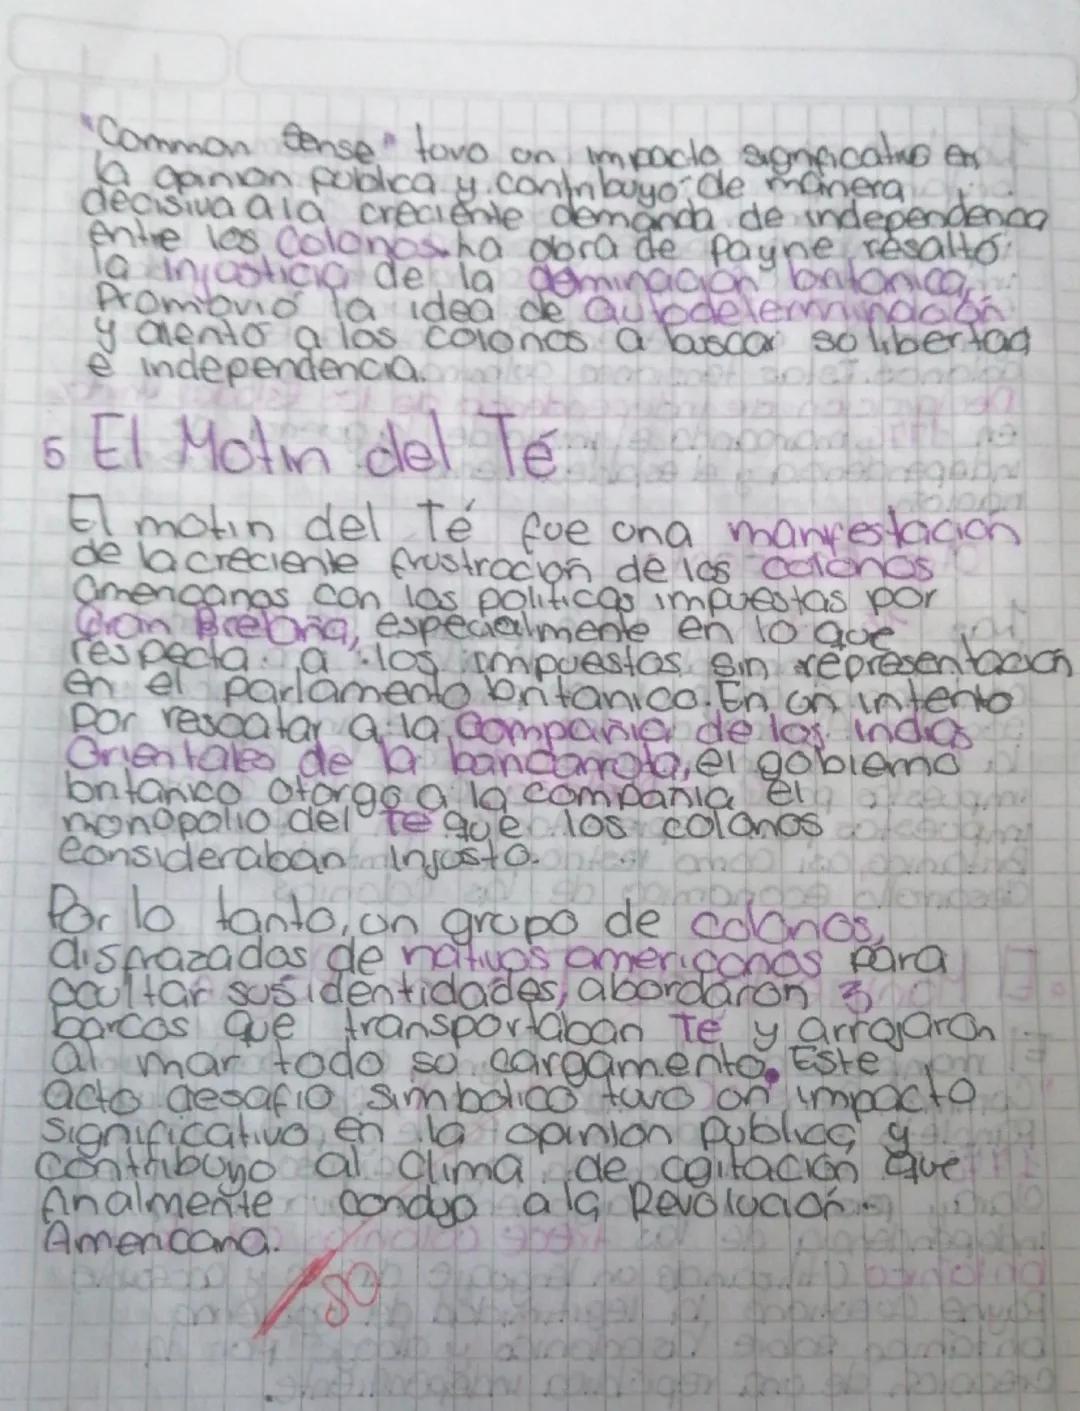 "Common Sense" tuvo un impacto significativo en
la opinion publica y contribuyo de manera
decisiva a la creciente demanda de independencia
entre los colonos. La obra de Payne resaltó
la injusticia de la dominación britanica,
Promovió la idea de autodeterminación
y alento a los colonos a buscar su libertad
e independencia.
5 El Motin del Té
El motin del Té fue una manifestación
de la creciente frustración de los colonos
americanos con las politicas impuestas por
Gran Bretaña, especialmente en lo que
respecta a los impuestos sin representación
en el parlamento britanico. En un intento
por rescatar a la Compañia de las Indias
Orientales de la bancarrota, el gobierno
britanico otorgo a la compañia el
monopolio del Te que los colonos
consideraban injusto.
Por lo tanto, un grupo de colonos,
disfrazados de nativos americanos para
ocultar sus identidades, abordaron 3
barcos que transportaban Té y arrojaron
al mar todo su cargamento. Este
acto desafio simbolico tuvo un impacto
significativo en la opinion publica y
contribuyo al clima de agitación que
finalmente condujo a la Revolución
Americana.
80